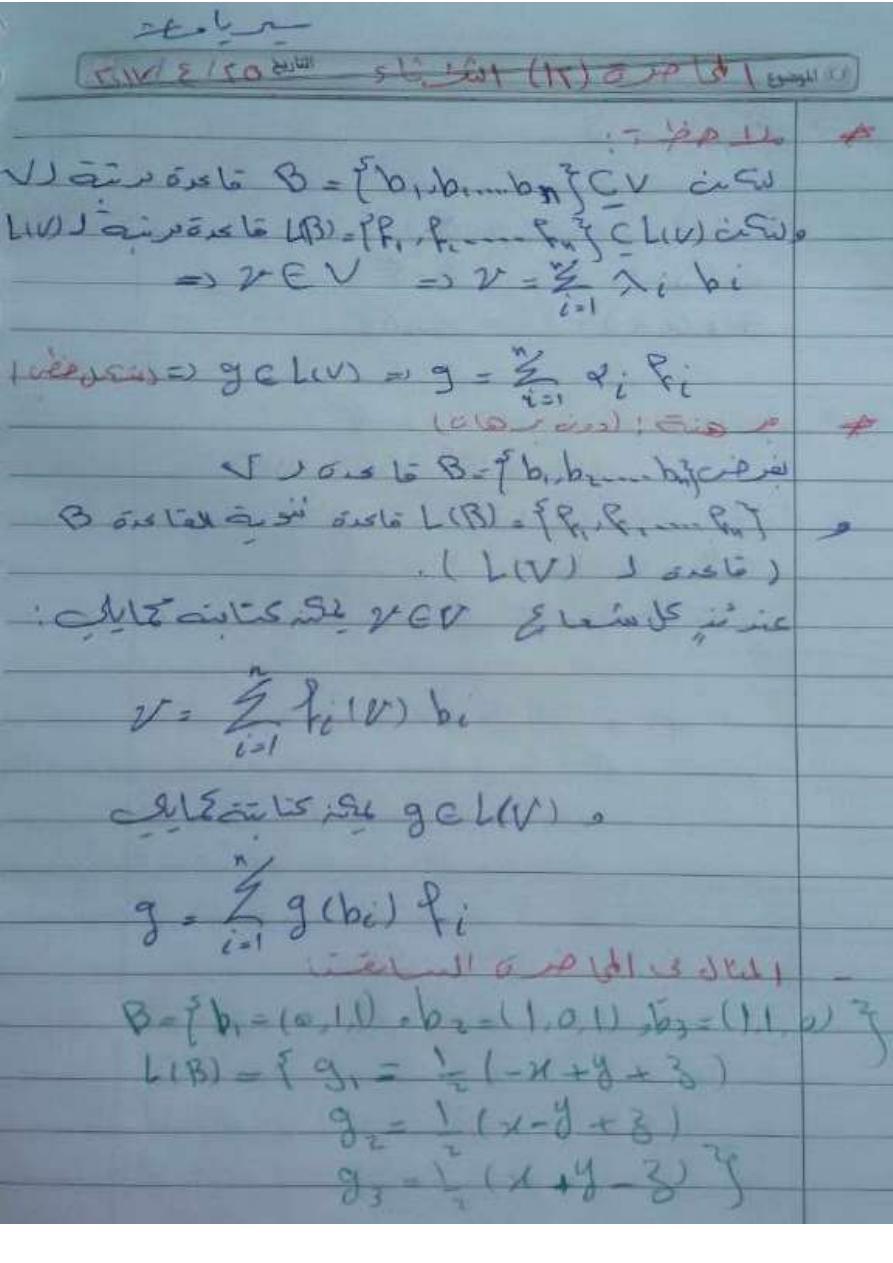 الموضوع المحاضرة (١٢) الثلاثاء التاريخ ٢٠١٧/٤/٢٥
* ملاحظة:
لتكن B = {b₁, b₂ .... bₙ} ⊆ V قاعدة مرتبة لـ V
ولتكن L(B) = {f₁, f₂ ...... fₙ} ⊆ L(V) قاعدة مرتبة لـ L(V)
⇒ v ∈ V ⇒ v = Σ_{i=1}^{n} λᵢ bᵢ
⇒ g ∈ L(V) ⇒ g = Σ_{i=1}^{n} αᵢ fᵢ ⇐ (بشكل
* مبرهنة: (دون برهان)
بفرض B = {b₁, b₂ ..... bₙ} قاعدة لـ V
و L(B) = {f₁, f₂ ..... fₙ} قاعدة ثنوية للقاعدة B
(قاعدة لـ L(V)).
عندئذٍ كل شعاع v ∈ V يمكن كتابته كمايلي:
v = Σ_{i=1}^{n} fᵢ(v) bᵢ
و g ∈ L(V) يمكن كتابته كمايلي
g = Σ_{i=1}^{n} g(bᵢ) fᵢ
- المثال في المحاضرة السابقة:
B = {b₁ = (0,1,1), b₂ = (1,0,1), b₃ = (1,1,0)}
L(B) = { g₁ = 1/2 (-x + y + z)
g₂ = 1/2 (x - y + z)
g₃ = 1/2 (x + y - z) }